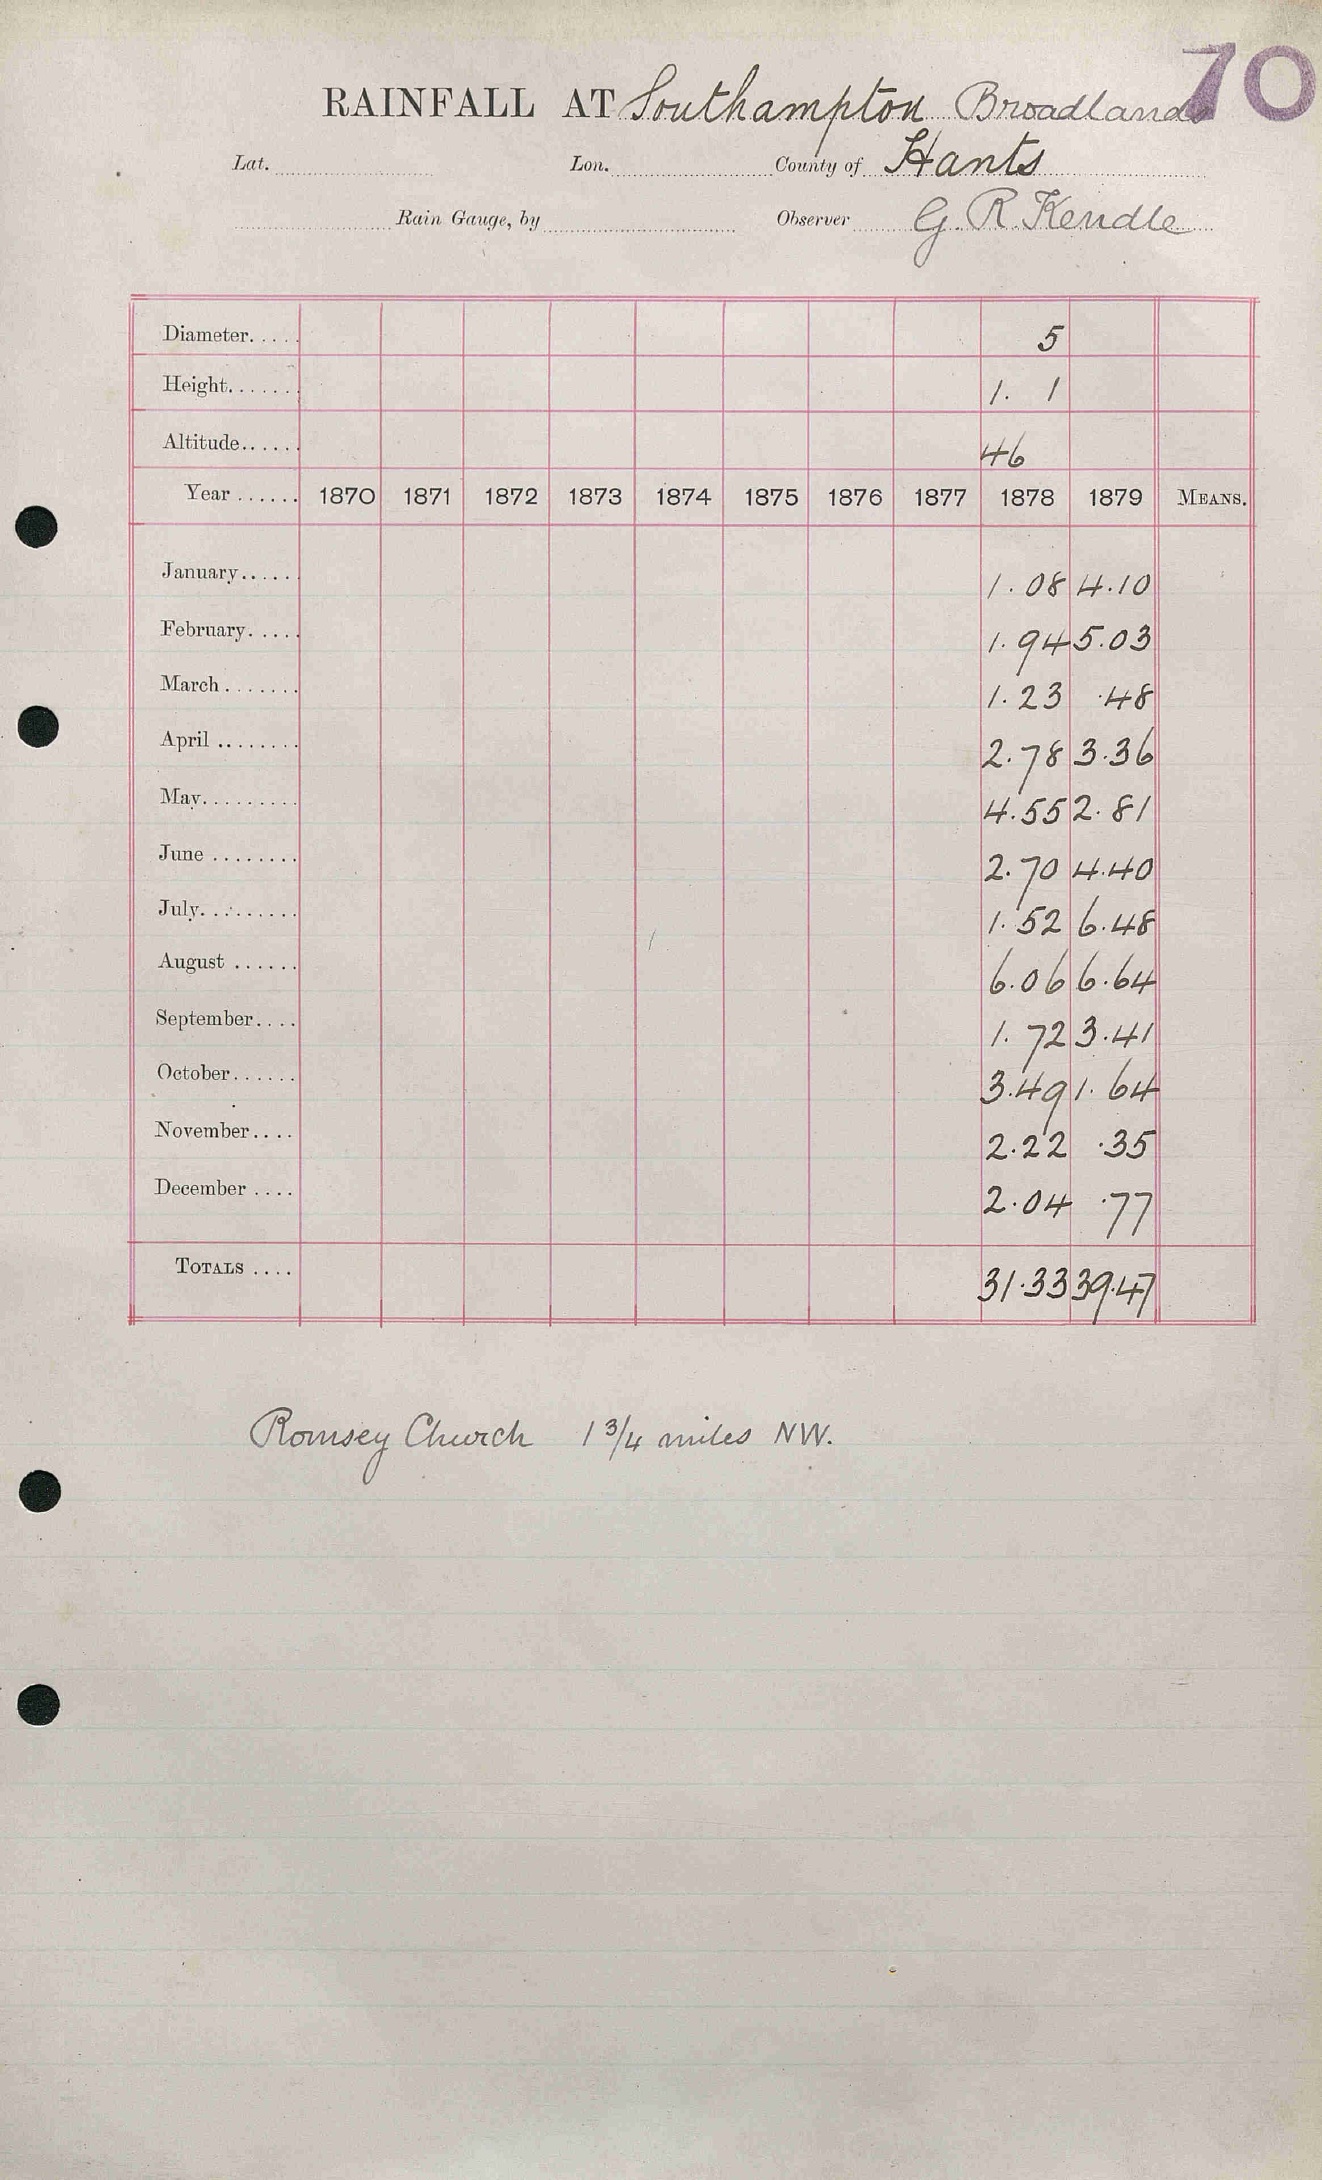 70
RAINFALL AT Southampton Broadlands
Lat. Lon. County of Hants
Rain Gauge, by Observer G. R. Kendle
Diameter..... 5
Height....... 1. 1
Altitude...... 46
Year ...... 1870 1871 1872 1873 1874 1875 1876 1877 1878 1879 MEANS.
January...... 1.08 4.10
February..... 1.94 5.03
March....... 1.23 .48
April ........ 2.78 3.36
May......... 4.55 2.81
June ........ 2.70 4.40
July......... 1.52 6.48
August ...... 6.06 6.64
September.... 1.72 3.41
October...... 3.49 1.64
November.... 2.22 .35
December .... 2.04 .77
TOTALS .... 31.33 39.47
Romsey Church 1 3/4 miles NW.